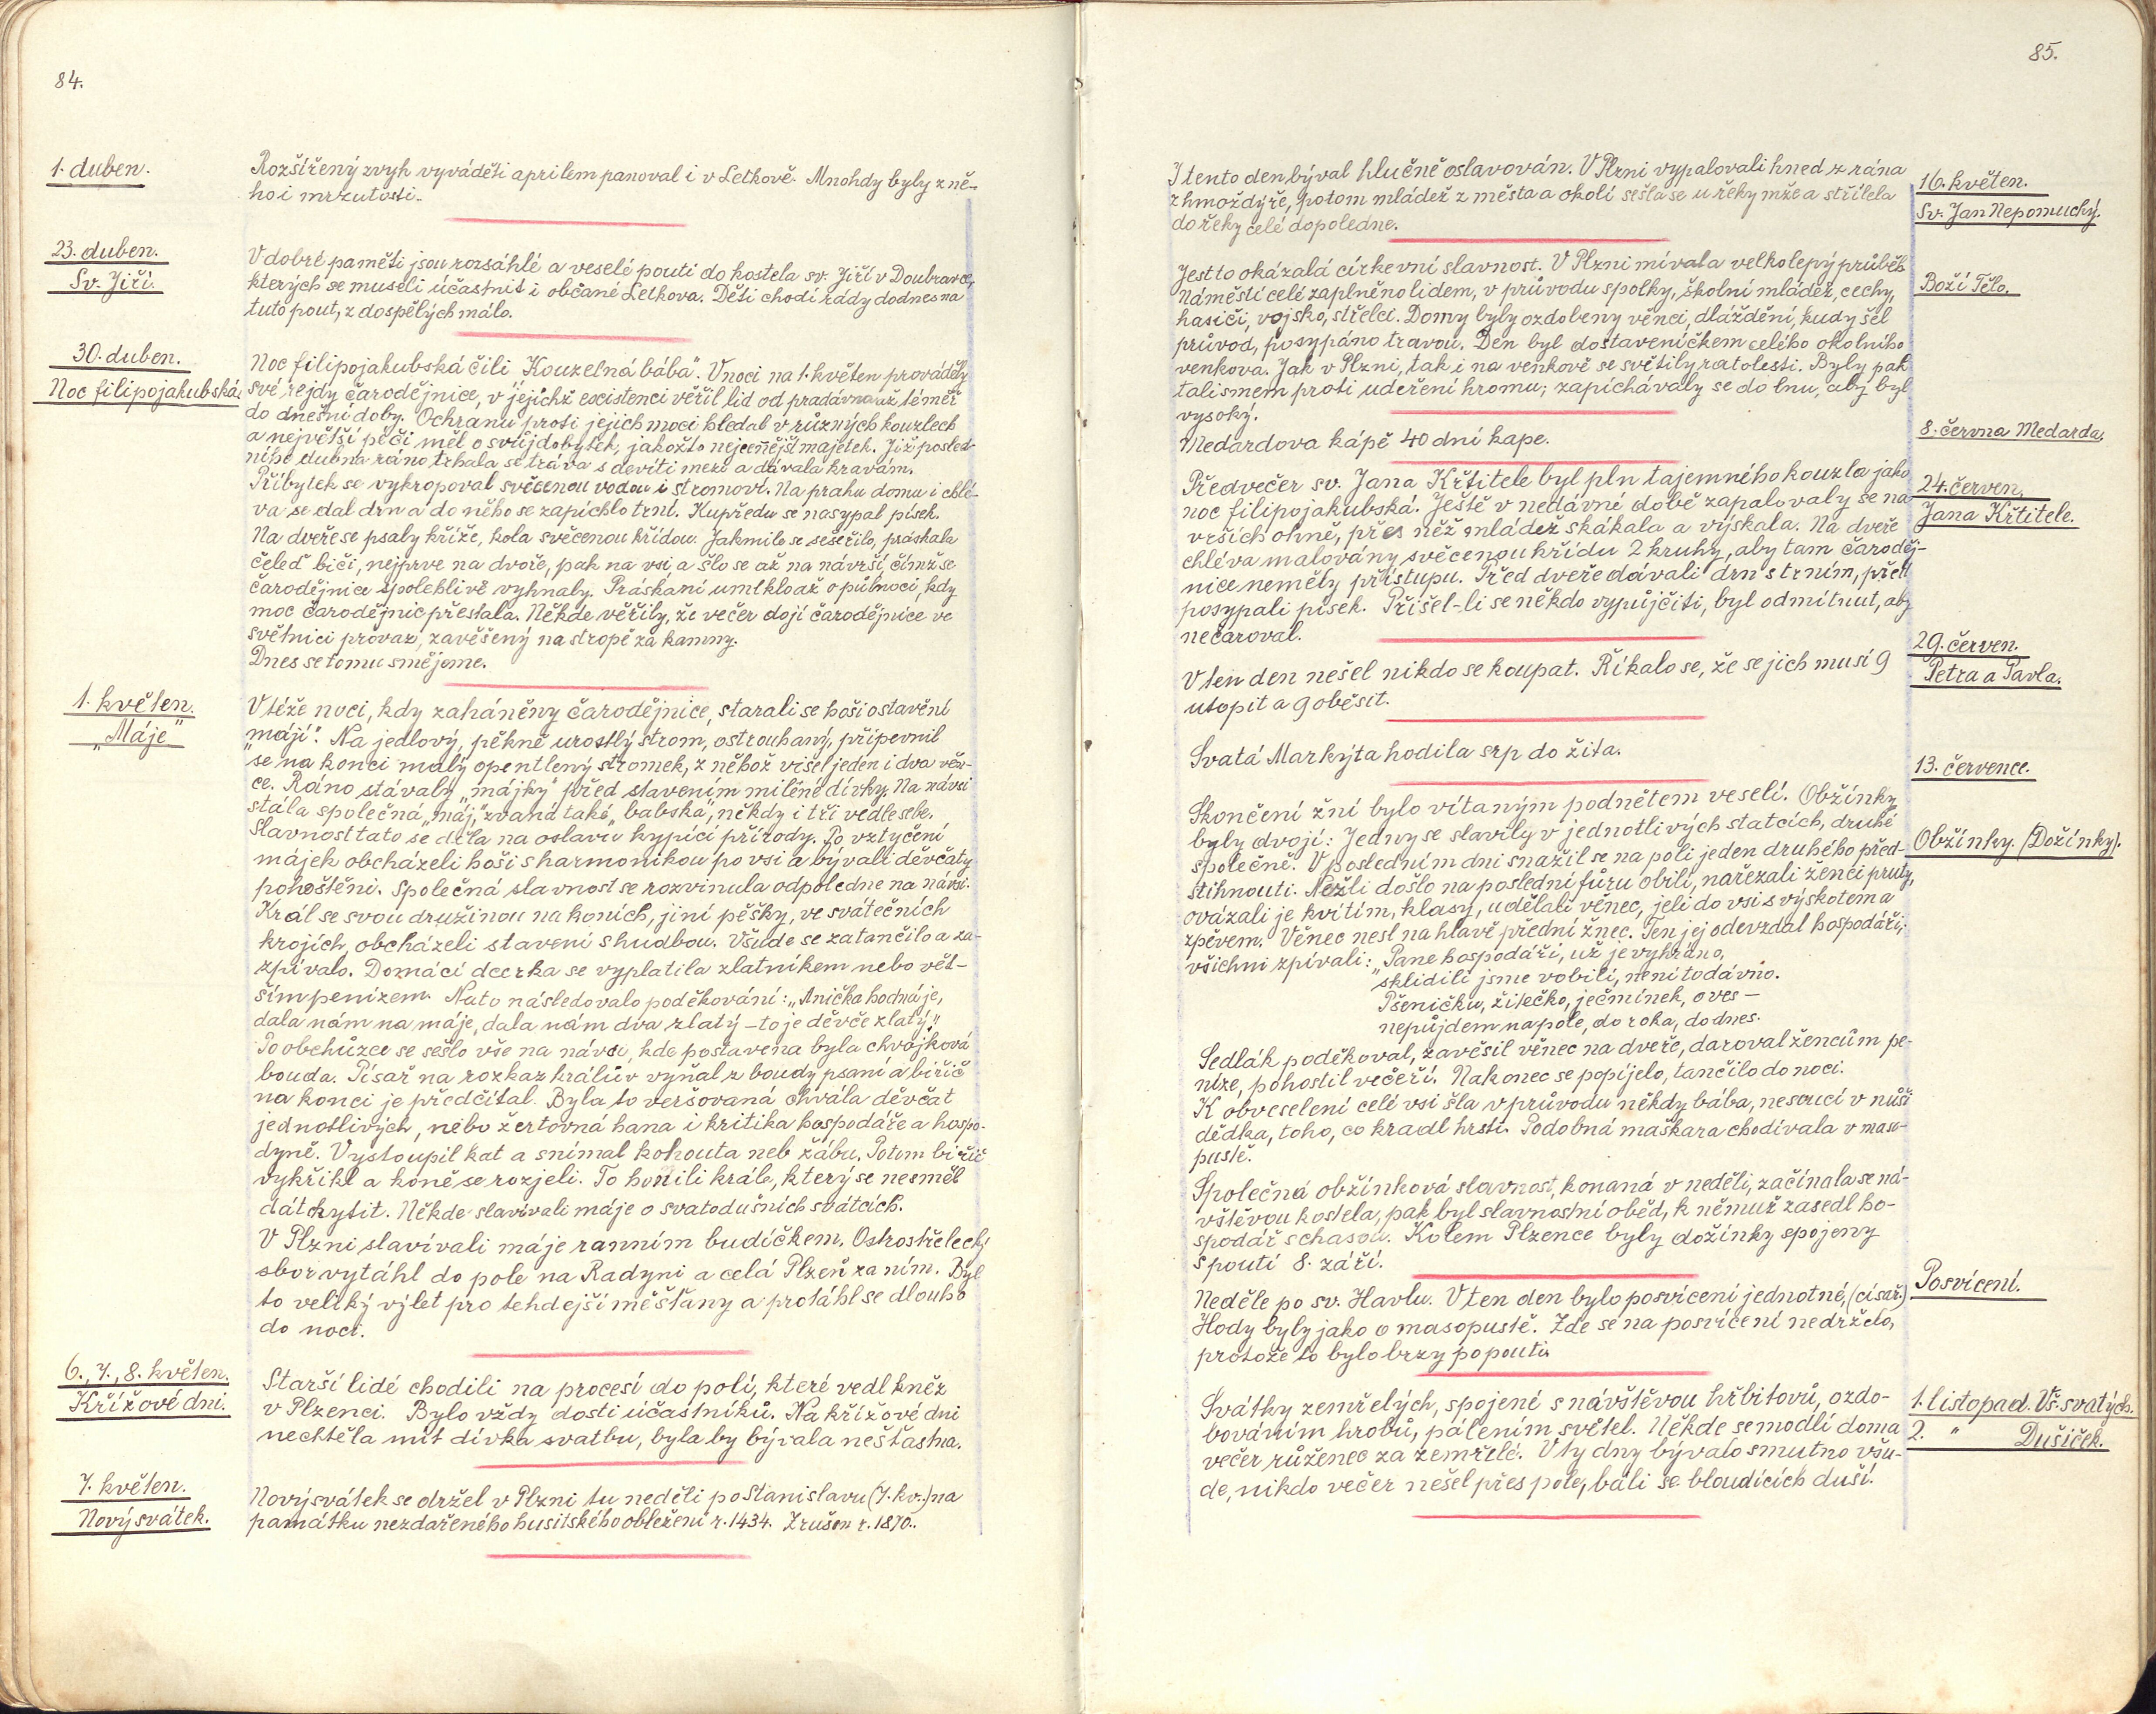 84.
1. duben.
Rozšířený zvyk vyváděti aprilem panoval i v Letkově. Mnohdy byly z ně-
ho i mrzutosti.
23. duben.
Sv. Jiří.
V dobré paměti jsou rozsáhlé a veselé pouti do kostela sv. Jiří v Doubravce,
kterých se museli účastnit i občané Letkova. Děti chodí rády dodnes na
tuto pout, z dospělých málo.
30. duben.
Noc filipojakubská.
Noc filipojakubská čili „Kouzelná bába". V noci na 1. květen prováděly
své rejdy čarodějnice, v jejichž existenci věřil lid od pradávna až téměř
do dnešní doby. Ochranu proti jejich moci hledal v různých kouzlech
a největší péči měl o svůj dobytek, jakožto nejcennější majetek. Již posled-
ního dubna ráno trhala se tráva s devíti mezí a dávala kravám.
Příbytek se vykropoval svěcenou vodou i stromoví. Na prahu domu i chlé-
va se dal drn a do něho se zapíchlo trní. Kupředu se nasypal písek.
Na dveře se psaly kříže, kola svěcenou křídou. Jakmile se sešeřilo, práskala
čeleď biči, nejprve na dvoře, pak na vsi a šlo se až na návrší, čímž se
čarodějnice spolehlivě vyhnaly. Práskání umlklo až o půlnoci, kdy
moc čarodějnic přestala. Někde věřily, že večer dojí čarodějnice ve
světnici provaz, zavěšený na stropě za kamny.
Dnes se tomu smějeme.
1. květen.
„Máje"
V téže noci, kdy zaháněny čarodějnice, starali se hoši o stavění
„májí". Na jedlový, pěkně urostlý strom, ostrouhaný, připevnil
se na konci malý opentlený stromek, z něhož višel jeden i dva věn-
ce. Ráno stávaly „májky" před stavením milené dívky. Na návsi
stála společná „máj," zvaná také „babská", někdy i tři vedle sebe.
Slavnost tato se děla na oslavu kypící přírody. Po vztyčení
májek obcházeli hoši s harmonikou po vsi a bývali děvčaty
pohoštěni. Společná slavnost se rozvinula odpoledne na návsi.
Král se svou družinou na koních, jiní pěšky, ve svátečních
krojích, obcházeli stavení s hudbou. Všude se zatančilo a za-
zpívalo. Domácí dcerka se vyplatila zlatníkem nebo vět-
ším penízem. Nato následovalo poděkování: „Anička hodná je,
dala nám na máje, dala nám dva zlatý – to je děvče zlatý."
Po obchůzce se sešlo vše na návsi, kde postavena byla chvojková
bouda. Písař na rozkaz králův vyňal z boudy psaní a biřič
na konci je předčítal. Byla to veršovaná chvála děvčat
jednotlivých, nebo žertovná hana i kritika hospodáře a hospo-
dyně. Vystoupil kat a snímal kohouta neb žábu. Potom biřič
vykřikl a koně se rozjeli. To honili krále, který se nesměl
dát chytit. Někde slavívali máje o svatodušních svátcích.
V Plzni slavívali máje ranním budíčkem. Ostrostřelecký
sbor vytáhl do pole na Radyni a celá Plzeň za ním. Byl
to veliký výlet pro tehdejší měšťany a protáhl se dlouho
do noci.
6., 7., 8. květen.
Křížové dni.
Starší lidé chodili na procesí do polí, které vedl kněz
v Plzenci. Bylo vždy dosti účastníků. Na křížové dni
nechtěla mít dívka svatbu, byla by bývala nešťastna.
7. květen.
Nový svátek.
Nový svátek se držel v Plzni tu neděli po Stanislavu (7. kv.) na
památku nezdařeného husitského obležení r. 1434. Zrušen r. 1870.
85.
I tento den býval hlučně oslavován. V Plzni vypalovali hned z rána
z hmoždýře, potom mládež z města a okolí sešla se u řeky mže a střílela
do řeky celé dopoledne.
16. květen.
Sv. Jan Nepomucký.
Jest to okázalá církevní slavnost. V Plzni mívala velkolepý průběh.
Náměstí celé zaplněno lidem, v průvodu spolky, školní mládež, cechy,
hasiči, vojsko, střelci. Domy byly ozdobeny věnci, dláždění, kudy šel
průvod, posypáno travou. Den byl dostaveníčkem celého okolního
venkova. Jak v Plzni, tak i na venkově se světily ratolesti. Byly pak
talismem proti udeření hromu; zapichávaly se do lnu, aby byl
vysoký.
Boží Tělo.
Medardova kápě 40 dní kape.
8. června Medarda.
Předvečer sv. Jana Křtitele byl pln tajemného kouzla jako
noc filipojakubská. Ještě v nedávné době zapalovaly se na
vrších ohně, přes něž mládež skákala a výskala. Na dveře
chléva malovány svěcenou křídu 2 kruhy, aby tam čaroděj-
nice neměly přístupu. Před dveře dávali drn s trním, před
posypali písek. Přišel-li se někdo vypůjčiti, byl odmítnut, aby
nečaroval.
24. červen.
Jana Křtitele.
V ten den nešel nikdo se koupat. Říkalo se, že se jich musí 9
utopit a 9 oběsit.
29. červen.
Petra a Pavla.
Svatá Markýta hodila srp do žita.
13. července.
Skončení žní bylo vítaným podnětem veselí. Obžínky
byly dvojí: Jedny se slavily v jednotlivých statcích, druhé
společně. V posledním dni snažil se na poli jeden druhého před-
stihnouti. Nežli došlo na poslední fůru obilí, nařezali ženci pruty,
ovázali je kvítím, klasy, udělali věnec, jeli do vsi s výskotem a
zpěvem. Věnec nesl na hlavě přední žnec. Ten jej odevzdal hospodáři;
všichni zpívali: „Pane hospodáři, už je vyhráno,
sklidili jsme vobilí, není to dávno.
Pšeničku, žitečko, ječmínek, oves –
nepůjdem na pole, do roka, do dnes.
Obžínky. (Dožínky).
Sedlák poděkoval, zavěsil věnec na dveře, daroval žencům pe-
níze, pohostil večeří. Nakonec se popíjelo, tančilo do noci.
K obveselení celé vsi šla v průvodu někdy bába, nesoucí v nůši
dědka, toho, co kradl hrsti. Podobná maškara chodívala v maso-
pustě.
Společná obžínková slavnost, konaná v neděli, začínala se ná-
vštěvou kostela, pak byl slavnostní oběd, k němuž zasedl ho-
spodář s chasou. Kolem Plzence byly dožínky spojeny
s poutí 8. září.
Neděle po sv. Havlu. V ten den bylo posvícení jednotné, (císař.)
Hody byly jako o masopustě. Zde se na posvícení nedrželo,
protože to bylo brzy po pouti.
Posvícení.
Svátky zemřelých, spojené s návštěvou hřbitovů, ozdo-
bováním hrobů, pálením světel. Někde se modlí doma
večer růženec za zemřelé. V ty dny bývalo smutno všu-
de, nikdo večer nešel přes pole, báli se bloudících duší.
1. listopad. Vš. svatých.
2. " Dušiček.